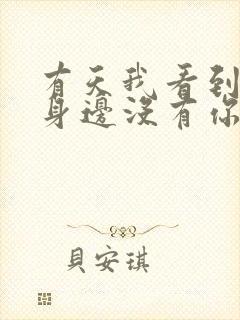 有天我看到
身邊沒有你
貝安琪